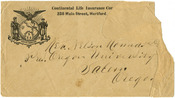 Continental Life Insurance Co.
258 Main Street, Hartford
Mrs. Nelson
Oregon University
Salem
Oregon